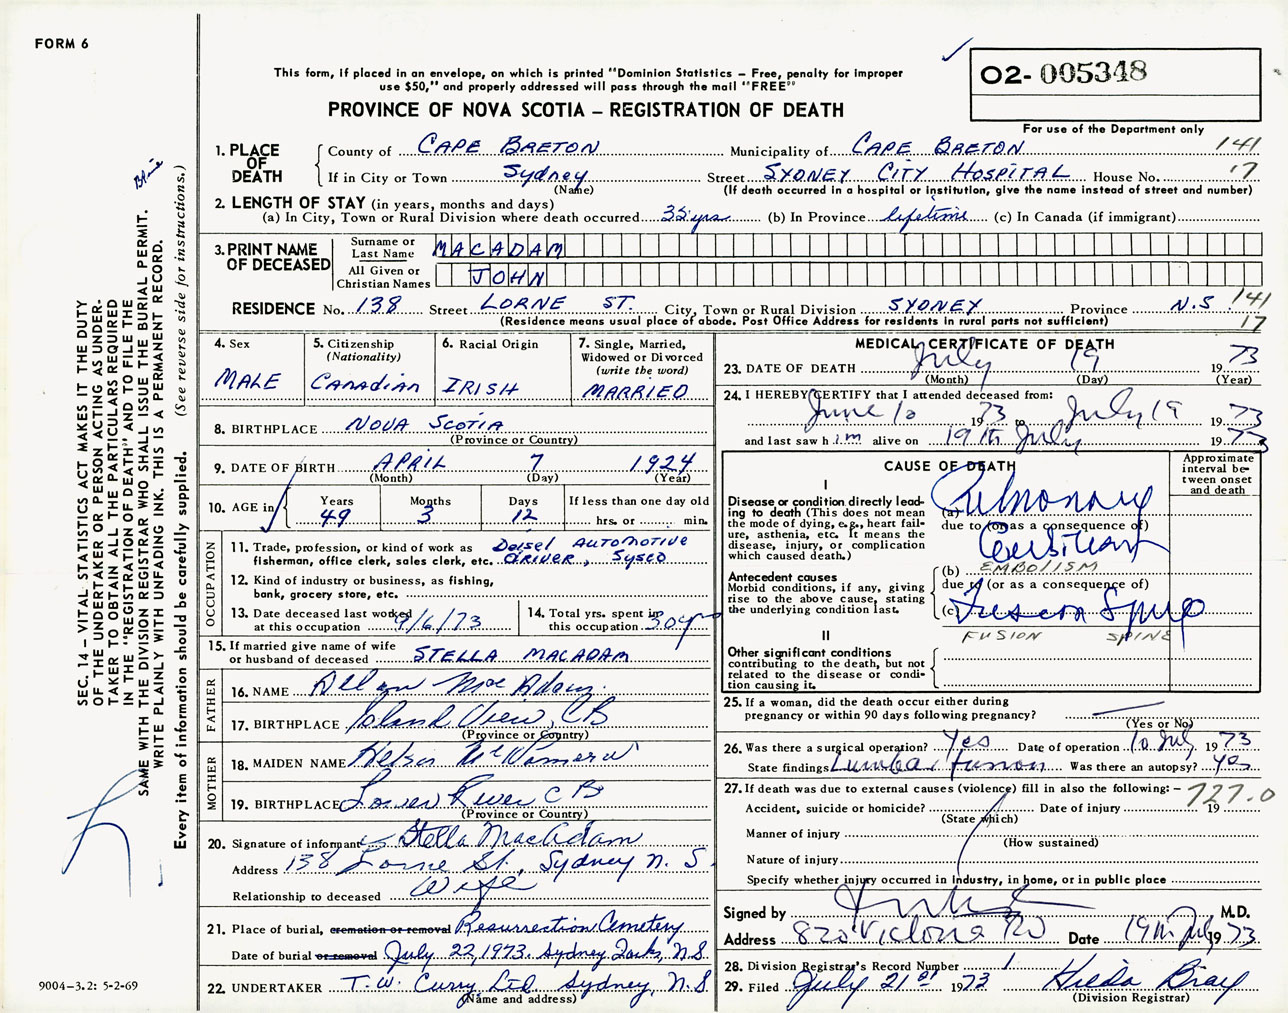 FORM 6
02-005348
This form, if placed in an envelope, on which is printed "Dominion Statistics – Free, penalty for improper
use $50," and properly addressed will pass through the mail "FREE"
PROVINCE OF NOVA SCOTIA – REGISTRATION OF DEATH
For use of the Department only
1. PLACE OF DEATH
County of CAPE BRETON Municipality of CAPE BRETON 141
If in City or Town Sydney Street SYDNEY CITY HOSPITAL House No. 17
(Name) (If death occurred in a hospital or institution, give the name instead of street and number)
2. LENGTH OF STAY (in years, months and days)
(a) In City, Town or Rural Division where death occurred 35 yrs. (b) In Province lifetime (c) In Canada (if immigrant)
3. PRINT NAME OF DECEASED
Surname or Last Name MACADAM
All Given or Christian Names JOHN
RESIDENCE No. 138 Street LORNE ST. City, Town or Rural Division SYDNEY Province N.S 141
(Residence means usual place of abode. Post Office Address for residents in rural parts not sufficient) 17
4. Sex MALE
5. Citizenship (Nationality) Canadian
6. Racial Origin IRISH
7. Single, Married, Widowed or Divorced (write the word) MARRIED
8. BIRTHPLACE NOVA SCOTIA
(Province or Country)
9. DATE OF BIRTH APRIL 7 1924
(Month) (Day) (Year)
10. AGE in Years 49 Months 3 Days 12 If less than one day old hrs. or min.
OCCUPATION
11. Trade, profession, or kind of work as fisherman, office clerk, sales clerk, etc. AUTOMOTIVE DRIVER, SYSCO
12. Kind of industry or business, as fishing, bank, grocery store, etc.
13. Date deceased last worked at this occupation 9/6/73
14. Total yrs. spent in this occupation 30 yrs
15. If married give name of wife or husband of deceased STELLA MACADAM
FATHER
16. NAME Allan MacAdam
17. BIRTHPLACE Island View, CB
(Province or Country)
MOTHER
18. MAIDEN NAME McNamara
19. BIRTHPLACE Lower River CB
(Province or Country)
20. Signature of informant Stella MacAdam
Address 138 Lorne St., Sydney N. S.
Relationship to deceased Wife
21. Place of burial, cremation or removal Resurrection Cemetery
Date of burial or removal July 22, 1973. Sydney Forks, N.S.
22. UNDERTAKER T. W. Curry Ltd. Sydney, N.S
(Name and address)
MEDICAL CERTIFICATE OF DEATH
23. DATE OF DEATH July 19 1973
(Month) (Day) (Year)
24. I HEREBY CERTIFY that I attended deceased from:
June 10 1973 to July 19 1973
and last saw him alive on 19th July 1973
CAUSE OF DEATH
Approximate interval between onset and death
I
Disease or condition directly leading to death (This does not mean the mode of dying, e.g., heart failure, asthenia, etc. It means the disease, injury, or complication which caused death.)
(a) Pulmonary
due to (or as a consequence of)
(b) EMBOLISM
Antecedent causes
Morbid conditions, if any, giving rise to the above cause, stating the underlying condition last.
due to (or as a consequence of)
(c) Fusion Spine
FUSION SPINE
II
Other significant conditions contributing to the death, but not related to the disease or condition causing it.
25. If a woman, did the death occur either during
pregnancy or within 90 days following pregnancy?
(Yes or No)
26. Was there a surgical operation? Yes Date of operation 10 July 1973
State findings Lumbar Fusion Was there an autopsy? Yes
27. If death was due to external causes (violence) fill in also the following: – 727.0
Accident, suicide or homicide? Date of injury 19
(State which)
Manner of injury
(How sustained)
Nature of injury
Specify whether injury occurred in industry, in home, or in public place
Signed by M.D.
Address 820 Victoria Rd Date 19th July 1973
28. Division Registrar's Record Number 1
29. Filed July 21st 1973 Hilda Bray
(Division Registrar)
SEC. 14 – VITAL STATISTICS ACT MAKES IT THE DUTY
OF THE UNDERTAKER OR PERSON ACTING AS UNDER-
TAKER TO OBTAIN ALL THE PARTICULARS REQUIRED
IN THE "REGISTRATION OF DEATH" AND TO FILE THE
SAME WITH THE DIVISION REGISTRAR WHO SHALL ISSUE THE BURIAL PERMIT.
WRITE PLAINLY WITH UNFADING INK. THIS IS A PERMANENT RECORD.
Every item of information should be carefully supplied. (See reverse side for instructions.)
9004–3.2: 5-2-69